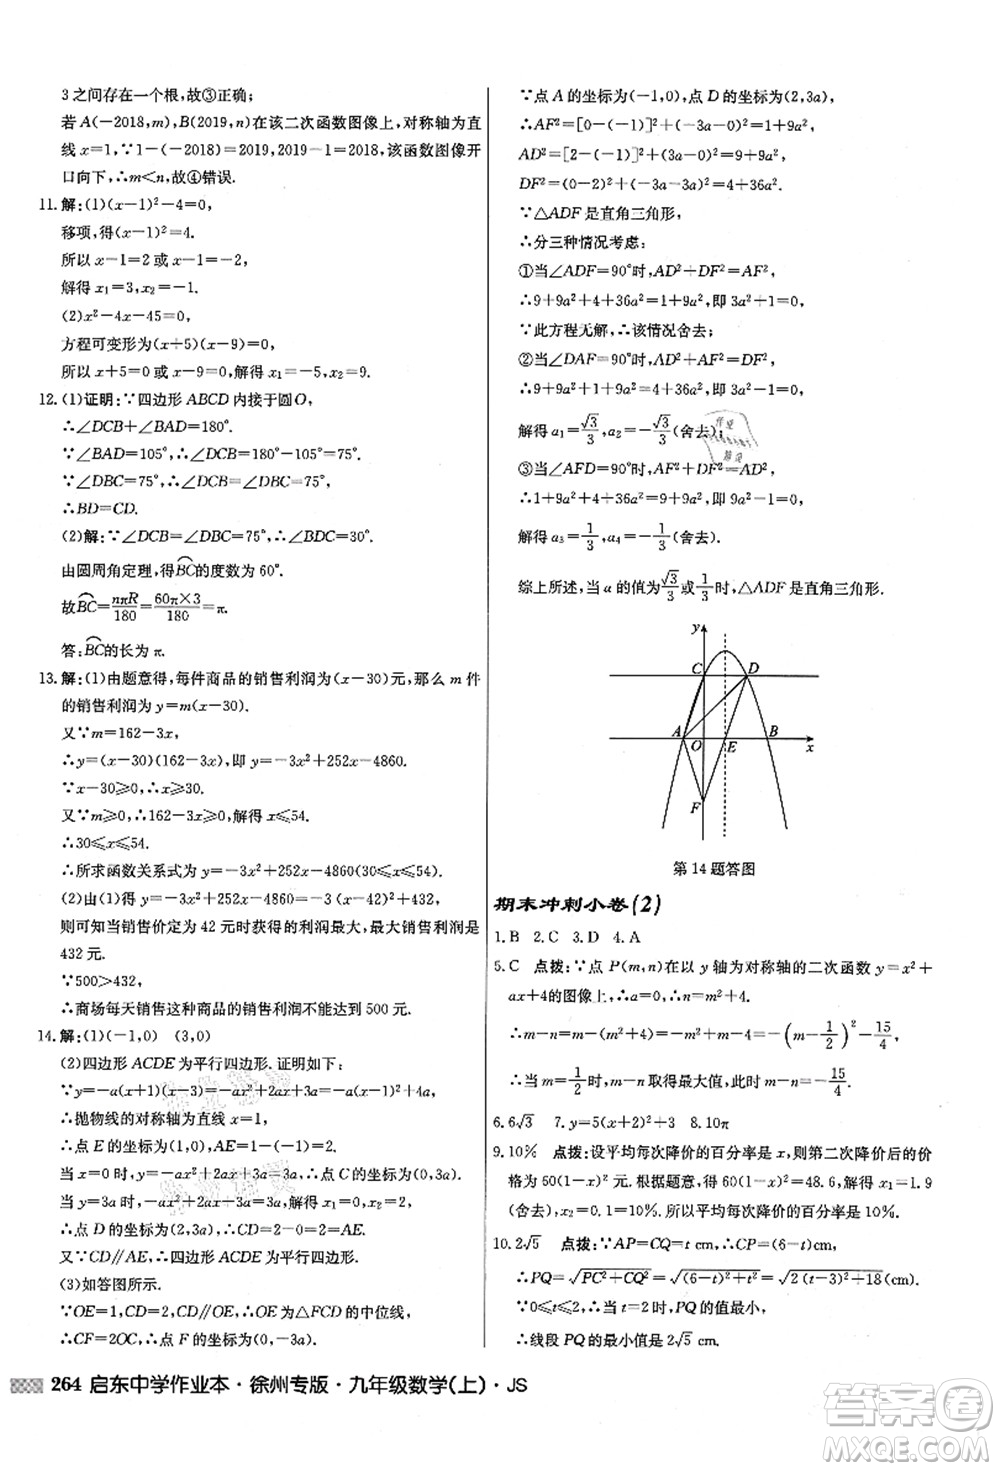 3之间存在一个根,故③正确;
若A(-2018,m),B(2019,n)在该二次函数图像上,对称轴为直
线x=1,∵1-(-2018)=2019,2019-1=2018,该函数图像开
口向下,∴m<n,故④错误.
11.解:(1)(x-1)²-4=0,
移项,得(x-1)²=4.
所以x-1=2或x-1=-2,
解得x₁=3,x₂=-1.
(2)x²-4x-45=0,
方程可变形为(x+5)(x-9)=0,
所以x+5=0或x-9=0,解得x₁=-5,x₂=9.
12.(1)证明:∵四边形ABCD内接于圆O,
∴∠DCB+∠BAD=180°.
∵∠BAD=105°,∴∠DCB=180°-105°=75°.
∵∠DBC=75°,∴∠DCB=∠DBC.
∴BD=CD.
(2)解:∵∠DCB=∠DBC=75°,∴∠BDC=30°.
由圆周角定理,得BC的度数为60°.
故BC=nπR/180=60π×3/180=π.
答:BC的长为π.
13.解:(1)由题意得,每件商品的销售利润为(x-30)元,那么m件
的销售利润为y=m(x-30).
又∵m=162-3x,
∴y=(x-30)(162-3x)=-3x²+252x-4860.
∵x-30≥0,∴x≥30.
又∵m≥0,∴162-3x≥0,解得x≤54.
∴30≤x≤54.
∴所求函数关系式为y=-3x²+252x-4860(30≤x≤54).
(2)由(1)得y=-3x²+252x-4860=-3(x-42)²+432,
则可知当销售价定为42元时获得的利润最大,最大销售利润是
432元.
∵500>432,
∴商场每天销售这种商品的销售利润不能达到500元.
14.解:(1)(-1,0) (3,0)
(2)四边形ACDE为平行四边形.证明如下:
∵y=-a(x+1)(x-3)=-a(x-1)²+4a,
∴抛物线的对称轴为直线x=1,
∴点E的坐标为(1,0),AE=1-(-1)=2.
当x=0时,y=-ax²+2ax+3a=3a,∴点C的坐标为(0,3a).
当y=3a时,-ax²+2ax+3a=3a,解得x₁=0,x₂=2,
∴点D的坐标为(2,3a),∴CD=2-0=2=AE.
又∵CD∥AE,∴四边形ACDE是平行四边形.
(3)如答图所示.
∵OE=1,CD=2,CD∥OE,∴OE为△FCD的中位线,
∴CF=2OC,∴点F的坐标为(0,-3a).
264 启东中学作业本·徐州专版·九年级数学(上)·JS
∵点A的坐标为(-1,0),点D的坐标为(2,3a),
∴AF²=[0-(-1)]²+(-3a-0)²=1+9a²,
AD²=[2-(-1)]²+(3a-0)²=9+9a²,
DF²=(0-2)²+(-3a-3a)²=4+36a².
∵△ADF是直角三角形,
∴分三种情况考虑:
①当∠ADF=90°时,AD²+DF²=AF²,
∴9+9a²+4+36a²=1+9a²,即36a²=-12,
∵此方程无解,∴该情况舍去;
②当∠DAF=90°时,AD²+AF²=DF²,
∴9+9a²+1+9a²=4+36a²,即18a²=6,
解得a₁=√3/3,a₂=-√3/3(舍去);
③当∠AFD=90°时,AF²+DF²=AD²,
∴1+9a²+4+36a²=9+9a²,即9a²-1=0,
解得a₃=1/3,a₄=-1/3(舍去).
综上所述,当a的值为√3/3或1/3时,△ADF是直角三角形.
y
C
D
A
O
E
B
x
F
第14题答图
期末冲刺小卷(2)
1.B 2.C 3.D 4.A
5.C 点拨:∵点P(m,n)在以y轴为对称轴的二次函数y=x²+
ax+4的图像上,∴a=0,∴n=m²+4.
∴m-n=m-(m²+4)=-m²+m-4=-(m-1/2)²-15/4,
∴当m=1/2时,m-n取得最大值,此时m-n=-15/4.
6.6√3 7.y=5(x+2)²+3 8.10π
9.10% 点拨:设平均每次降价的百分率为x,则第二次降价后的价
格应是60(1-x)²元.根据题意,得60(1-x)²=48.6,解得x₁=1.9
(舍去),x₂=0.1=10%.所以平均每次降价的百分率为10%.
10.2√5 点拨:∵AP=CQ=t cm,∴CP=(6-t)cm,
∴PQ=√PC²+CQ²=√(6-t)²+t²=√2(t-3)²+18(cm).
∵0≤t≤2,∴当t=2时,PQ的值最小,
∴线段PQ的最小值是2√5 cm.
答案圈
MXQE.COM